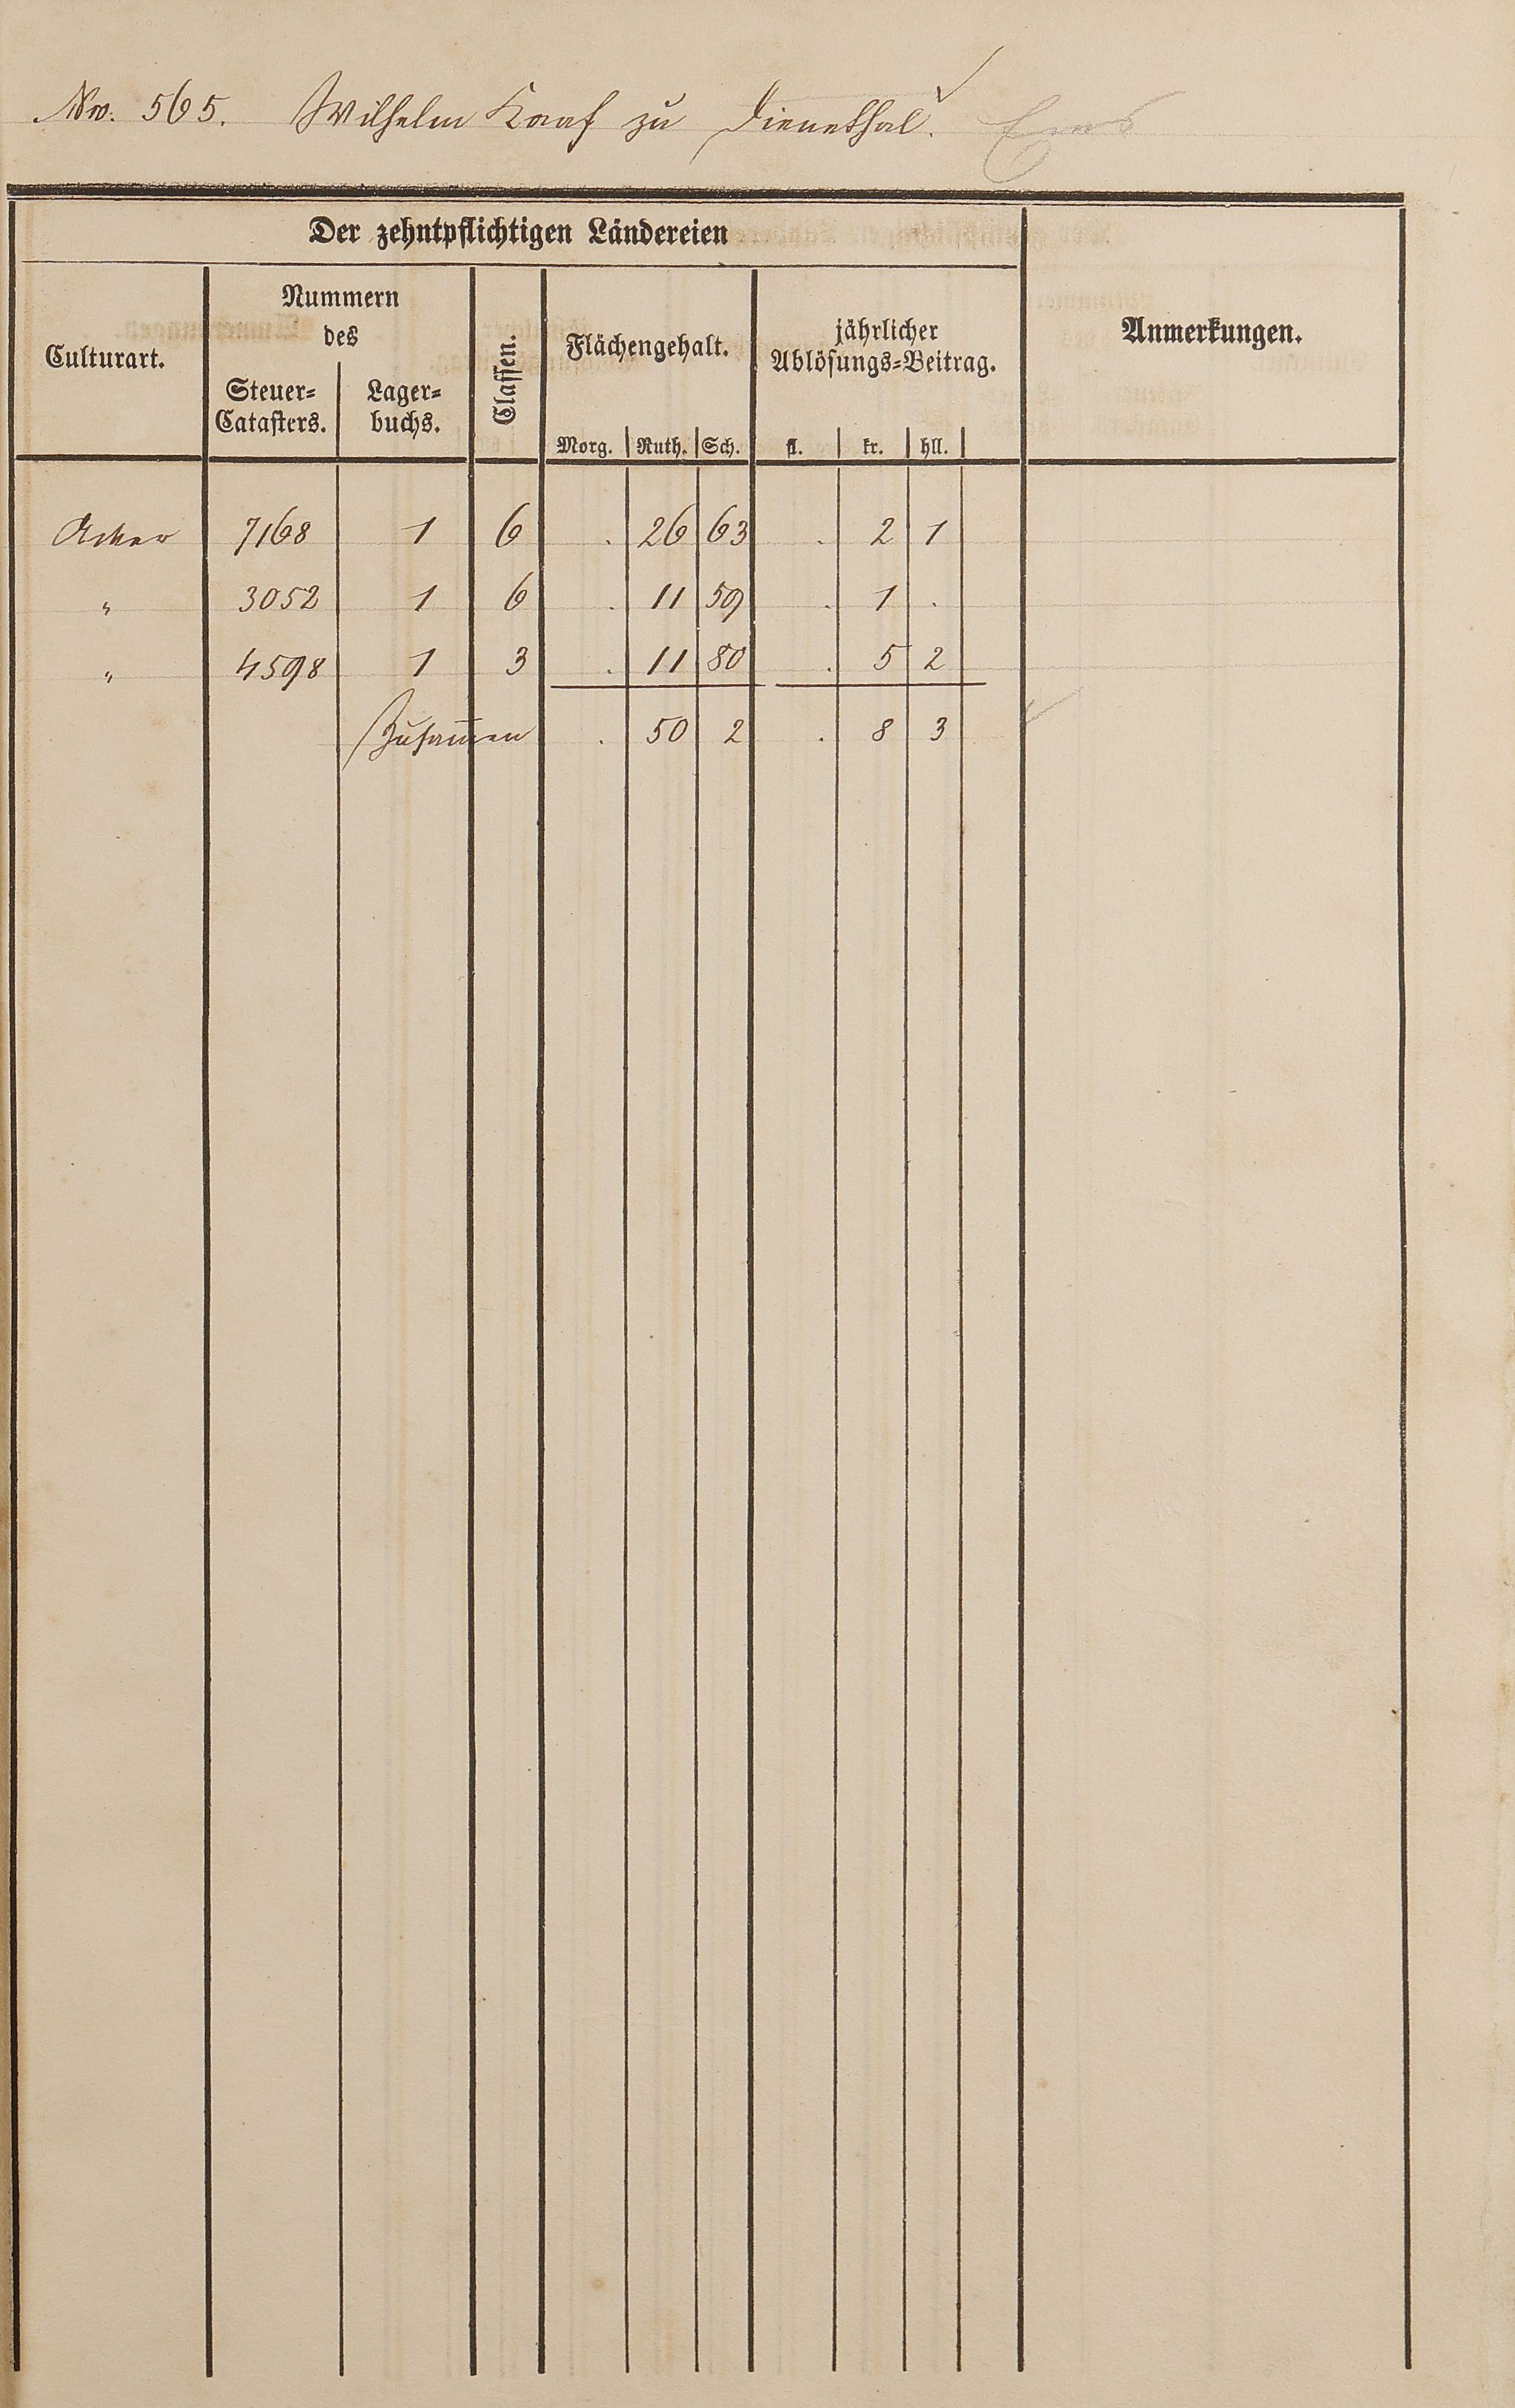 Nro. 565. Wilhelm Knaf zu Dienethal. Ems
Der zehntpflichtigen Ländereien
Culturart.
Nummern
des
Steuer=
Catasters.
Lager=
buchs.
Classen.
Flächengehalt.
Morg. Ruth. Sch.
jährlicher
Ablösungs=Beitrag.
fl. kr. hll.
Anmerkungen.
Acker 7168 1 6 . 26 63 . 2 1
" 3052 1 6 . 11 59 . 1 .
" 4598 1 3 . 11 80 . 5 2
Zusam̄en . 50 2 . 8 3